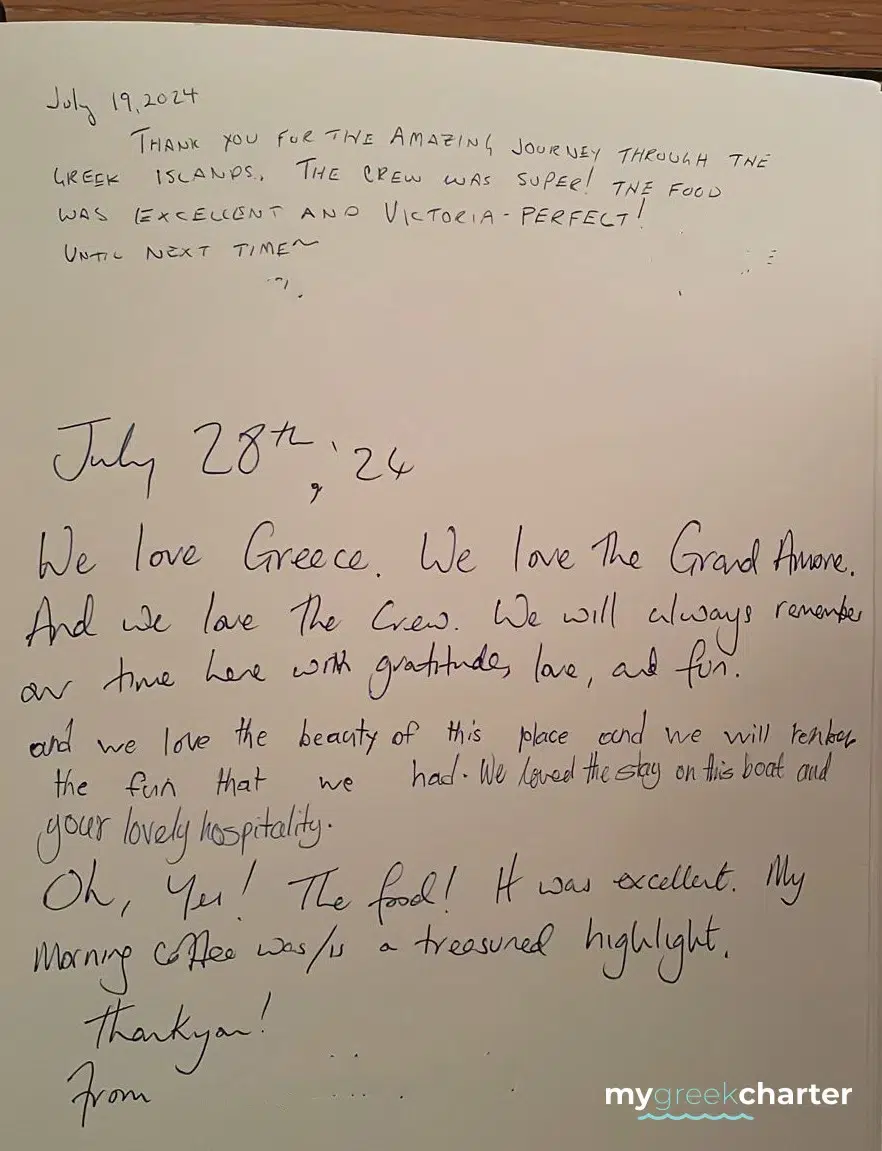 July 19, 2024
THANK YOU FOR THE AMAZING JOURNEY THROUGH THE
GREEK ISLANDS. THE CREW WAS SUPER! THE FOOD
WAS EXCELLENT AND VICTORIA - PERFECT!
UNTIL NEXT TIME~
July 28th, '24
We love Greece. We love The Grand Amore.
And we love The Crew. We will always remember
our time here with gratitude, love, and fun.
and we love the beauty of this place and we will
the fun that we had. We loved the stay on this boat and
your lovely hospitality.
Oh, Yes! The food! It was excellent. My
Morning coffee was/is a treasured highlight.
Thankyou!
From
mygreekcharter